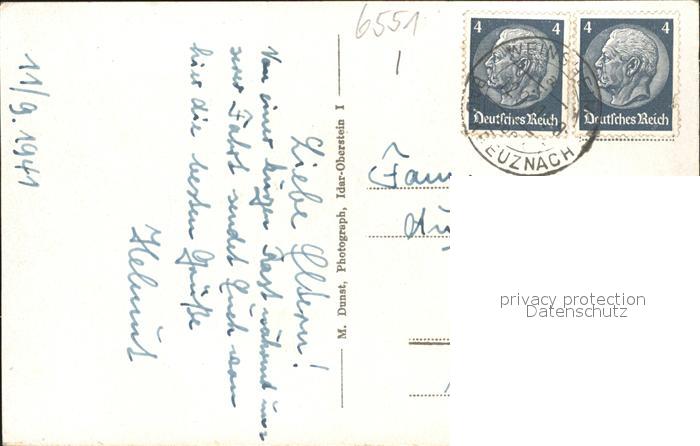 11/9. 1941
Liebe Eltern!
Von einer kurzen Rast während uns
erer Fahrt sendet Euch von
hier die besten Grüße
Helmut
M. Dunst, Photograph, Idar-Oberstein I
6551
1
4
Deutsches Reich
4
Deutsches Reich
KREUZNACH
Fam
privacy protection
Datenschutz